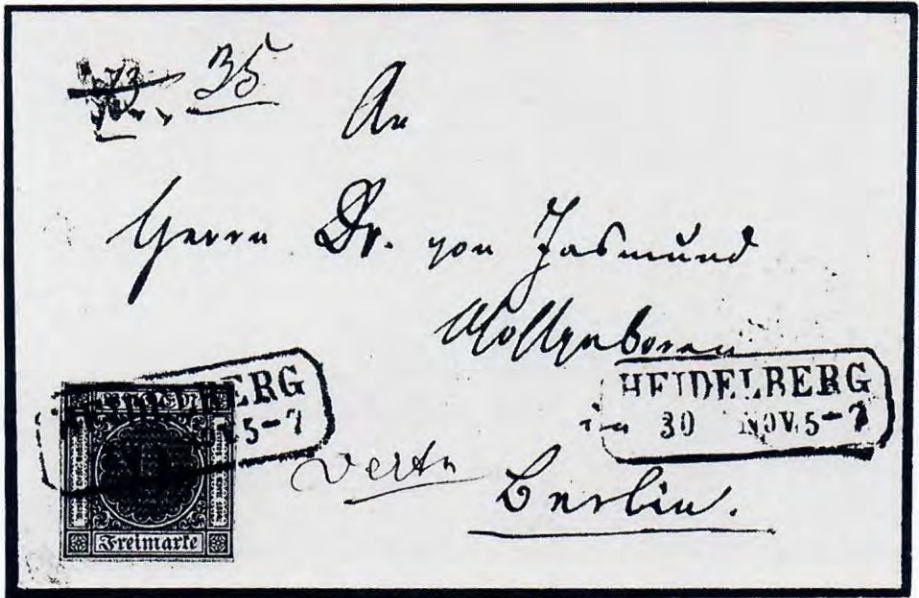 35
An
Herrn Dr. von Jasmund
Wohlgeboren
HEIDELBERG
30 NOV. 5-7
in
Berlin.
BADEN
ERG
5-7
Freimarke